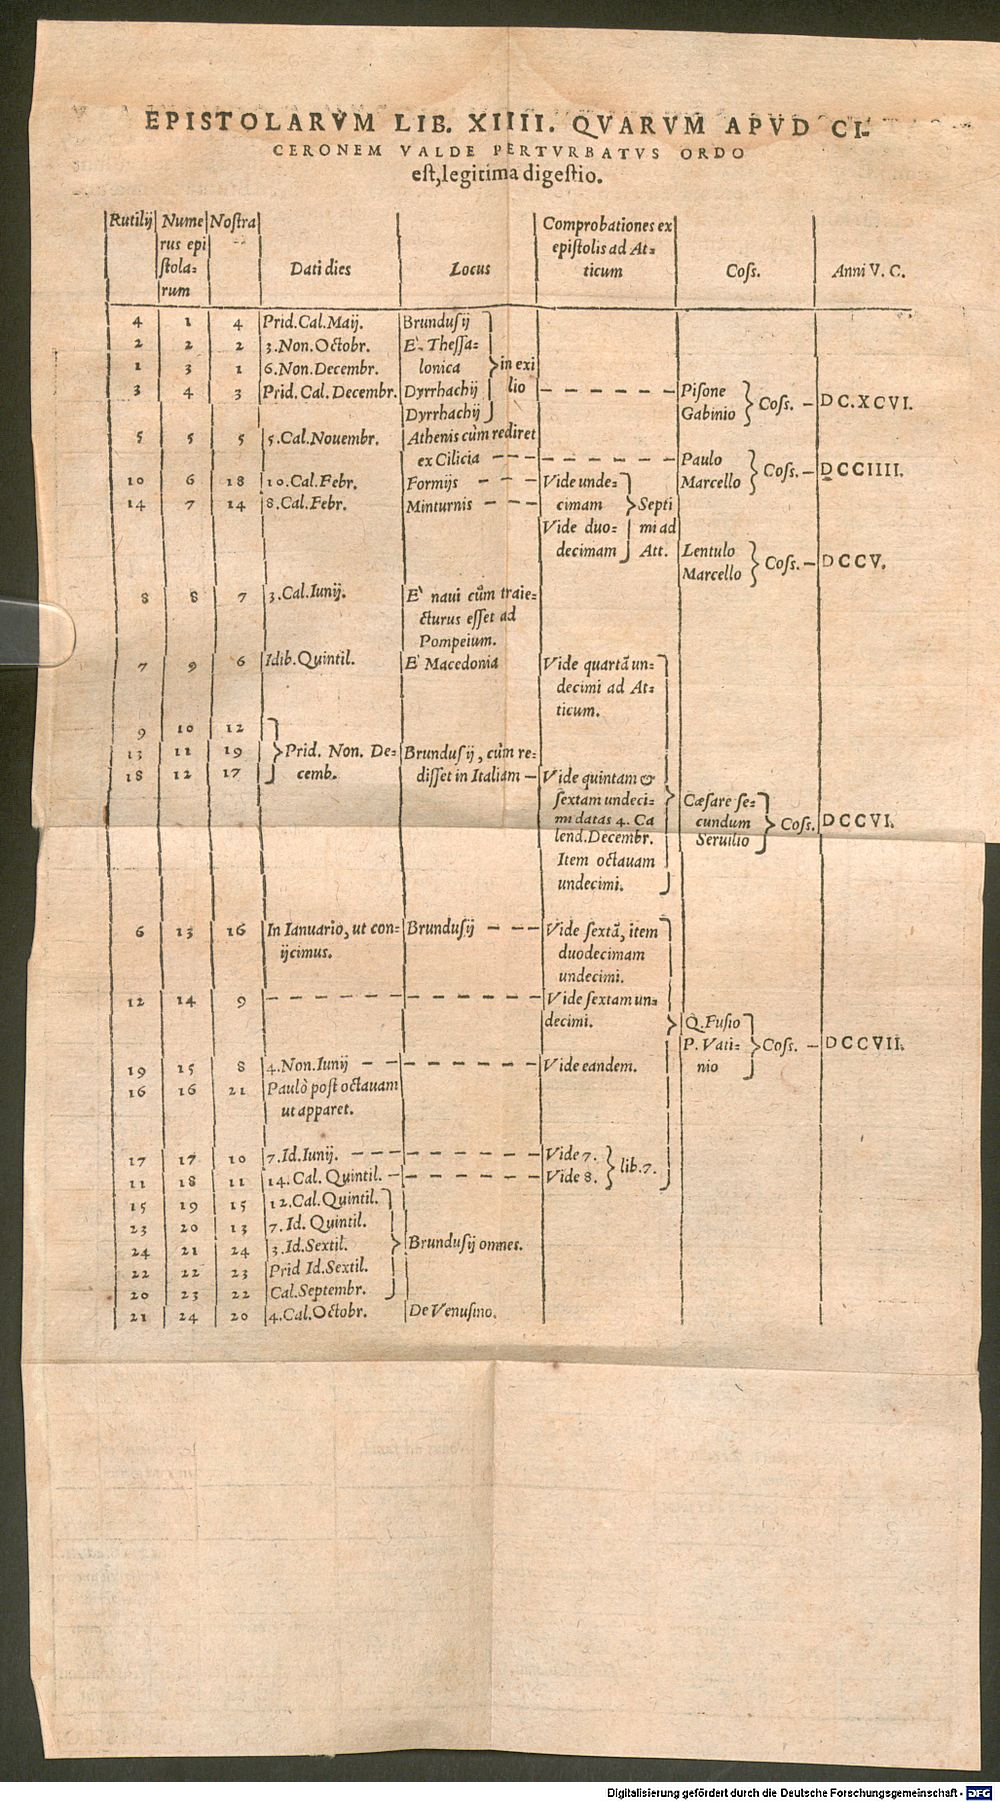 EPISTOLARVM LIB. XIIII. QVARVM APVD CI-
CERONEM VALDE PERTVRBATVS ORDO
est, legitima digestio.
Rutilij | Nume | Nostra | Comprobationes ex
rus epi | epistolis ad At-
stola- | Dati dies | Locus | ticum | Coss. | Anni V. C.
rum
4 | 1 | 4 | Prid. Cal. Maij. | Brundusij
2 | 2 | 2 | 3. Non. Octobr. | E' Thessa-
1 | 3 | 1 | 6. Non. Decembr. | lonica } in exi
3 | 4 | 3 | Prid. Cal. Decembr. | Dyrrhachij lio — — — — — — | Pisone
Dyrrhachij | Gabinio } Coss. — DC.XCVI.
5 | 5 | 5 | 5. Cal. Nouembr. | Athenis cùm rediret
ex Cilicia — — — — — — — — — | Paulo
10 | 6 | 18 | 10. Cal. Febr. | Formijs — — — | Vide unde- | Marcello } Coss. — DCCIIII.
14 | 7 | 14 | 8. Cal. Febr. | Minturnis — — — | cimam } Septi
Vide duo- mi ad
decimam Att. | Lentulo
Marcello } Coss. — DCCV.
8 | 8 | 7 | 3. Cal. Iunij. | E' naui cùm traie-
cturus esset ad
Pompeium.
7 | 9 | 6 | Idib. Quintil. | E' Macedonia | Vide quartã un-
decimi ad At-
ticum.
9 | 10 | 12
13 | 11 | 19 } Prid. Non. De- | Brundusij, cùm re-
18 | 12 | 17 cemb. | disset in Italiam — | Vide quintam &
sextam undeci- } Cæsare se-
mi datas 4. Ca | cundum } Coss. | DCCVI.
lend. Decembr. | Seruilio
Item octauam
undecimi.
6 | 13 | 16 | In Ianuario, ut con- | Brundusij — — — | Vide sextã, item
ijcimus. | duodecimam
undecimi.
12 | 14 | 9 | — — — — — — — — — — — — | Vide sextam un-
decimi. } Q. Fusio
P. Vati- } Coss. — DCCVII.
19 | 15 | 8 | 4. Non. Iunij — — — — — — — — | Vide eandem. | nio
16 | 16 | 21 | Paulò post octauam
ut apparet.
17 | 17 | 10 | 7. Id. Iunij. — — — — — — — — — | Vide 7.
11 | 18 | 11 | 14. Cal. Quintil. — — — — — — — | Vide 8. } lib. 7.
15 | 19 | 15 | 12. Cal. Quintil.
23 | 20 | 13 | 7. Id. Quintil.
24 | 21 | 24 | 3. Id. Sextil. } Brundusij omnes.
22 | 22 | 23 | Prid Id. Sextil.
20 | 23 | 22 | Cal. Septembr.
21 | 24 | 20 | 4. Cal. Octobr. | De Venusino.
Digitalisierung gefördert durch die Deutsche Forschungsgemeinschaft - DFG